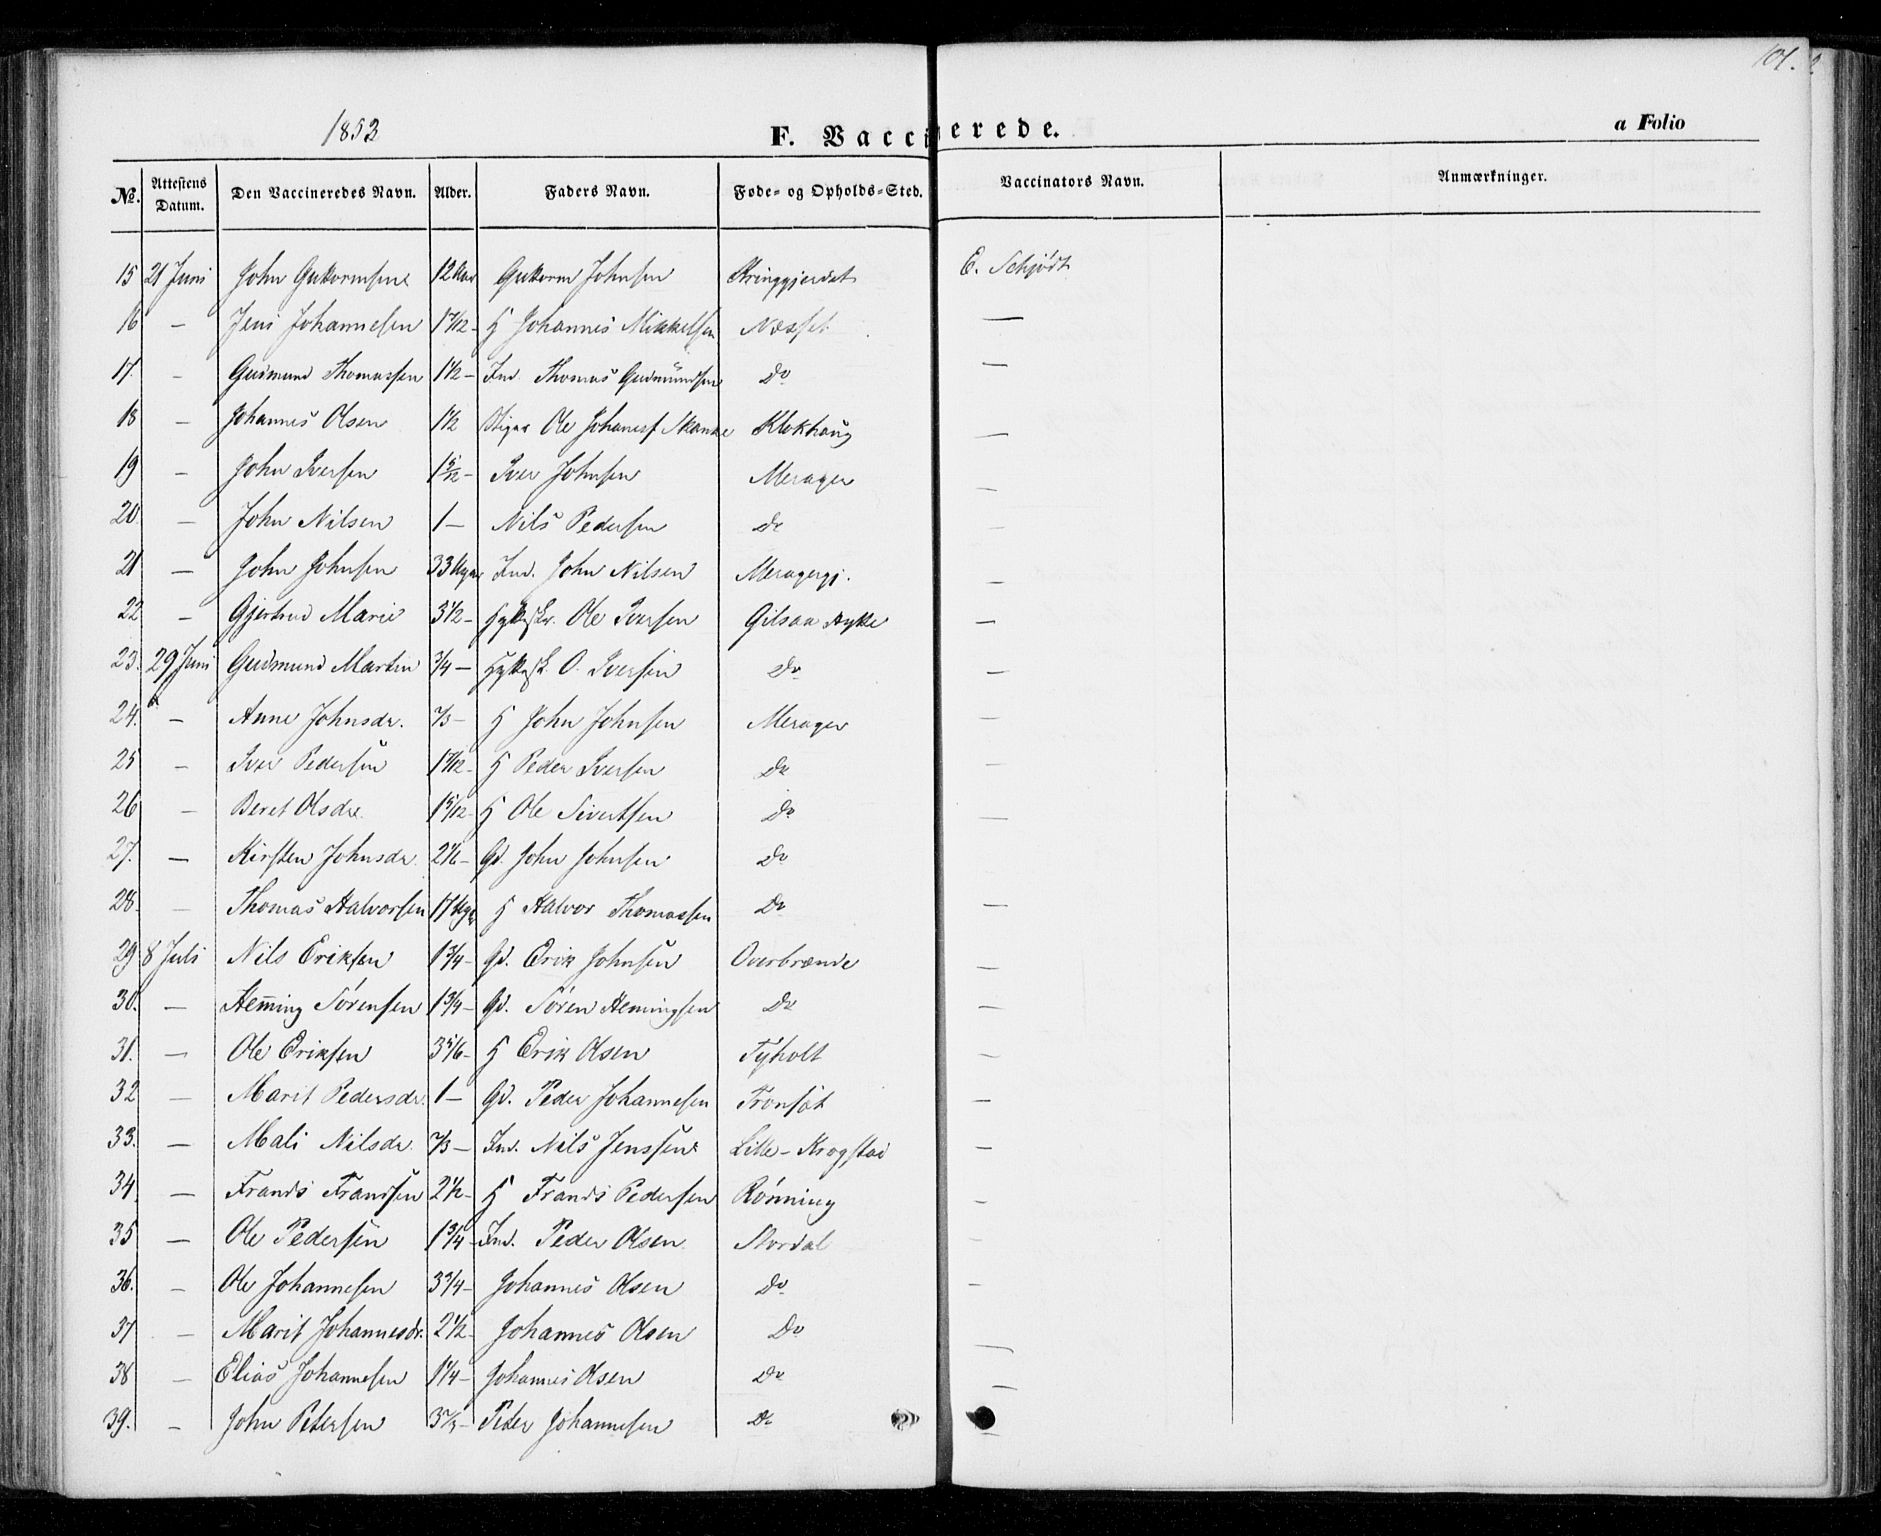 101.
1853
F. Vaccinerede.
a Folio
No. Attestens Datum. Den Vaccineredes Navn. Alder. Faders Navn. Føde- og Opholds-Sted. Vaccinators Navn. Anmærkninger.
15 21 Juni John Guttormsen 12 Aar Guttorm Johnsen Kringgjerdet E. Schjødt
16 — Jens Johannesen H Johannes Mikkelsen Næsset —
17. — Gudmund Thomassen 1½ — Ind. Thomas Gudmundsen Do —
18 — Johannes Olsen 1½ Ole Johanesf Skanke Klokhaug —
19 — John Iversen 1 5/12 — Iver Johnsen Merager —
20 — John Nilsen 1 — Nils Pedersen Do —
21 — John Johnsen 33 Uger Ind. John Nilsen Meragergj. —
22 — Gjertrud Marie 3½ — Ole Iversen Gilsaa Hytte —
23. 29 Juni Gudmund Martin ¾ — O. Iversen Do —
24. — Anne Johnsdr. H John Johnsen Merager —
25 — Iver Pedersen H Peder Iversen Do —
26 — Beret Olsdr. 1 5/12 — H Ole Sivertsen Do —
27. — Kirsten Johnsdr. 2 1/6 — Gd. John Johnsen Do —
28. — Thomas Halvorsen 17 Uger H Halvor Thomassen Do —
29 8 Juli Nils Eriksen 1¾ — Gd. Erik Johnsen Overbrænde —
30. — Heming Sørensen 1¾ — Gd. Søren Hemingsen Do —
31. — Ole Eriksen 3 5/6 — H Erik Olsen Tyholt —
32 — Marit Pedersdr. 1 — Gd. Peder Johannesen Trønsøt —
33. — Mali Nilsdr. Ind. Nils Jenssen Lille-Krogstad —
34 — Frands Frandsen 2½ — H Frands Pedersen Rønning —
35 — Ole Pedersen 1¾ — Ind. Peder Olsen Stordal —
36. — Ole Johannesen 3¾ — Johannes Olsen Do —
37 — Marit Johannesdr. 2½ — Johannes Olsen Do —
38 — Elias Johannesen 1¼ — Johannes Olsen Do —
39. — John Petersen Peder Johannesen Do —